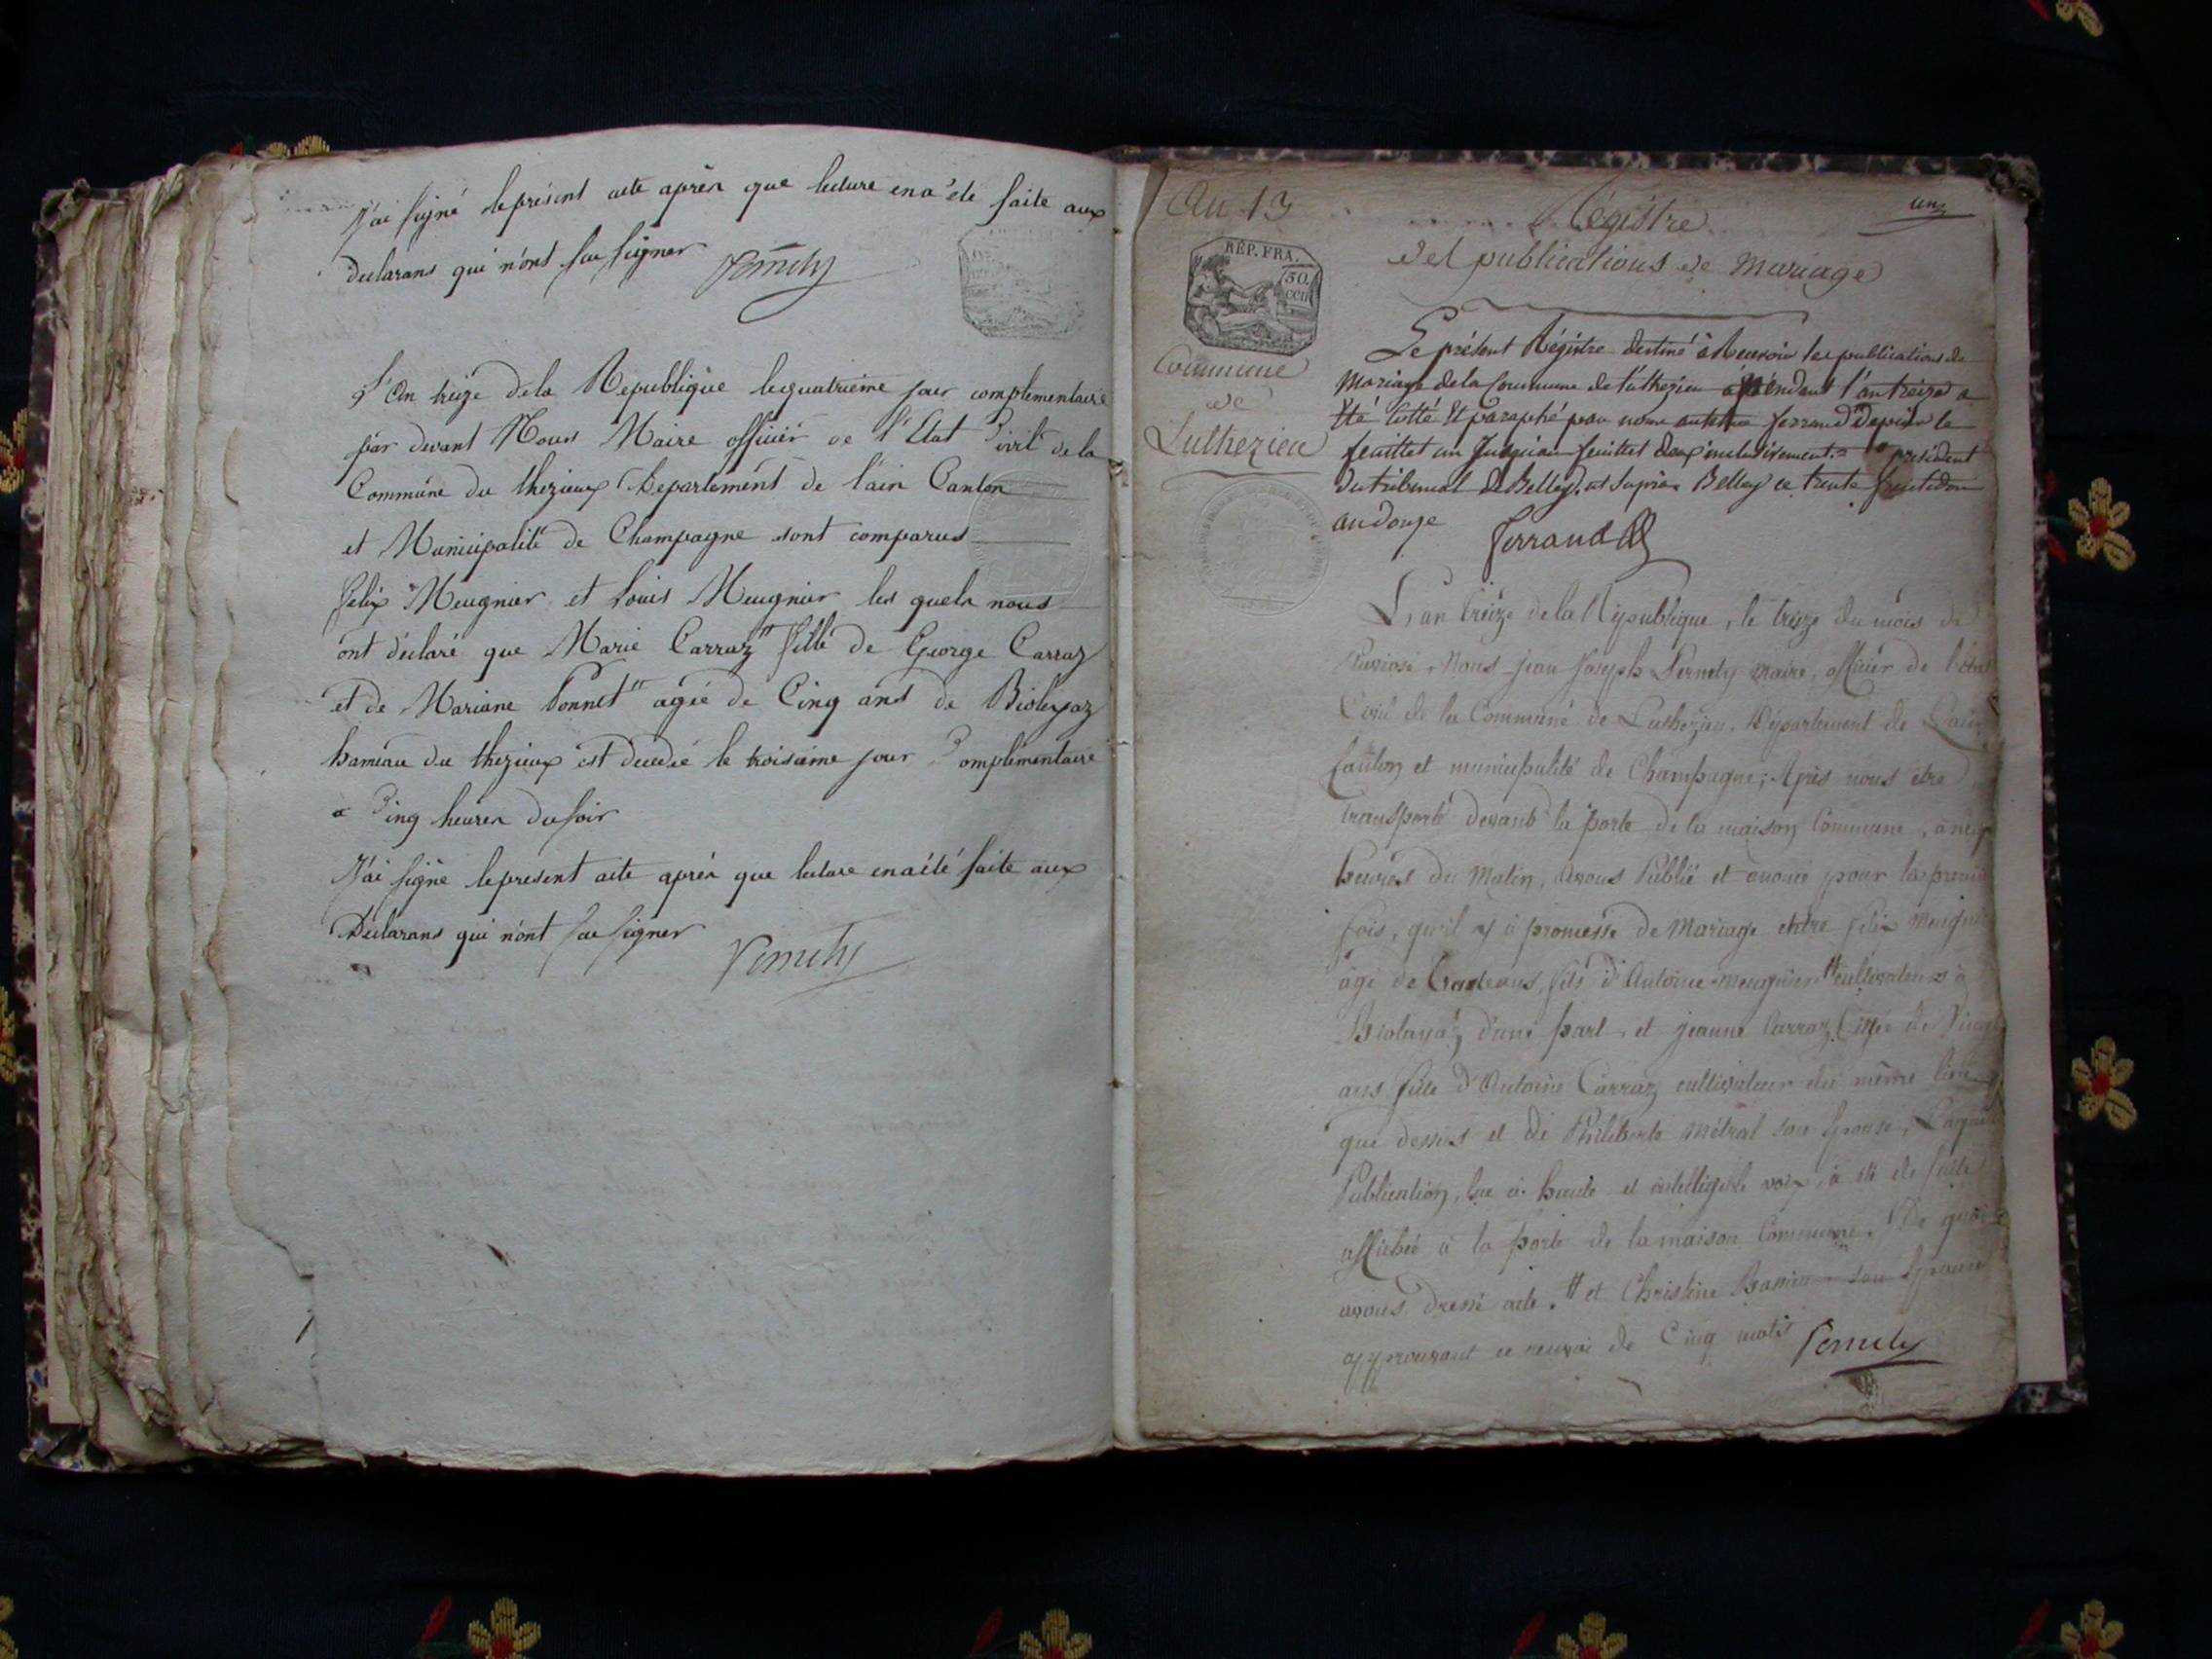 J'ai signé leprésent acte après que lecture en a été faite aux
declarans qui n'ont scu signer
Pernely
L'An treize dela Republique lequatrieme jour complementaire
par devant Nous Maire officier de l'Etat Civil de la
Commune du thezieux Departement de l'ain Canton
et Municipalité de Champagne sont comparus
felix Meugnier et Louis Meugnier les quels nous
ont déclaré que Marie Carraz fille de George Carraz
et de Mariane Ponnet agée de Cinq ans de Biolleyaz
hameau du thezieux est decedée le troisieme jour Complémentaire
a Cinq heures du soir
J'ai signé leprésent acte après que lecture en a été faite aux
Déclarans qui n'ont scu signer
Pernely
An 13
un
Régistre
des publications de Mariage
RÉP. FRA.
50.
cen
Commune
de
Luthezieu
Le présent Régistre destiné à Recevoir les publications de
Mariage dela Commune de Luthezieu pendant l'an treize a
été Cotté Et paraphé par nous ferrand Depuis le
feuillet un Jusqu'au feuillet deux inclusivement président
du tribunal de Belley Belley ce trente fructidor
an douze
ferrand
L'an treize dela République, le treize du mois de
Pluviose, Nous jean Joseph Pernely maire, officier de l'état
Civil de la Commune de Luthezieu, Département de L'ain
Canton et municipalité de Champagne; Après nous être
transporté devant la porte de la maison Commune, à neuf
heures du Matin, Avons Publié et anoncé pour la premie
fois, qu'il y a promesse de Mariage entre felix Meugni
âgé de ans, fils d'Antoine Meugnier cultivateurs à
Biolayaz d'une part, et jeanne Carraz Agée de Vingt
ans fille d'Antoine Carraz cultivateur du même lieu
que dessus et de Philiberte Métral son Epouse, Laquelle
Publication, lue à haute et intelligible voix, a été de suite
affichée à la porte de la maison Commune. De quoi
avons dressé acte. et Christine son Epouse
approuvant ce renvoi de Cinq mots Pernely